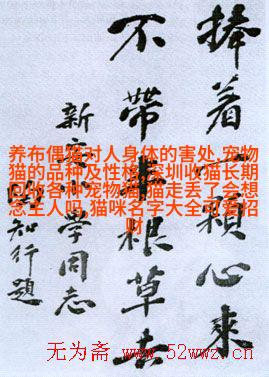 捧着一顆心來
不帶半根草去
新安小學同志
知行題
养布偶猫对人身体的害处,宠物
猫的品种及性格,深圳收猫长期
回收各种宠物猫,猫走丢了会想
念主人吗,猫咪名字大全可爱招
财
无为斋 www.52wwz.cn